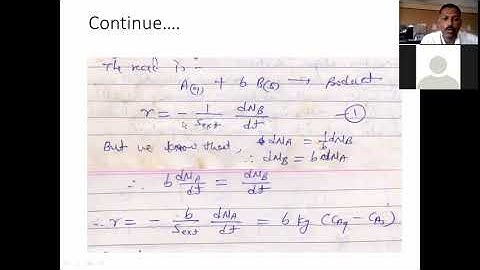 Continue....
The reactn is :-
A(g) + b B(s) → Product
r = - 1/Sext dNB/dt —①
But we know that, dNA = 1/b dNB
∴ dNB = b dNA
∴ b dNA/dt = dNB/dt
∴ r = - b/Sext dNA/dt = b kg (CAg - CAs)